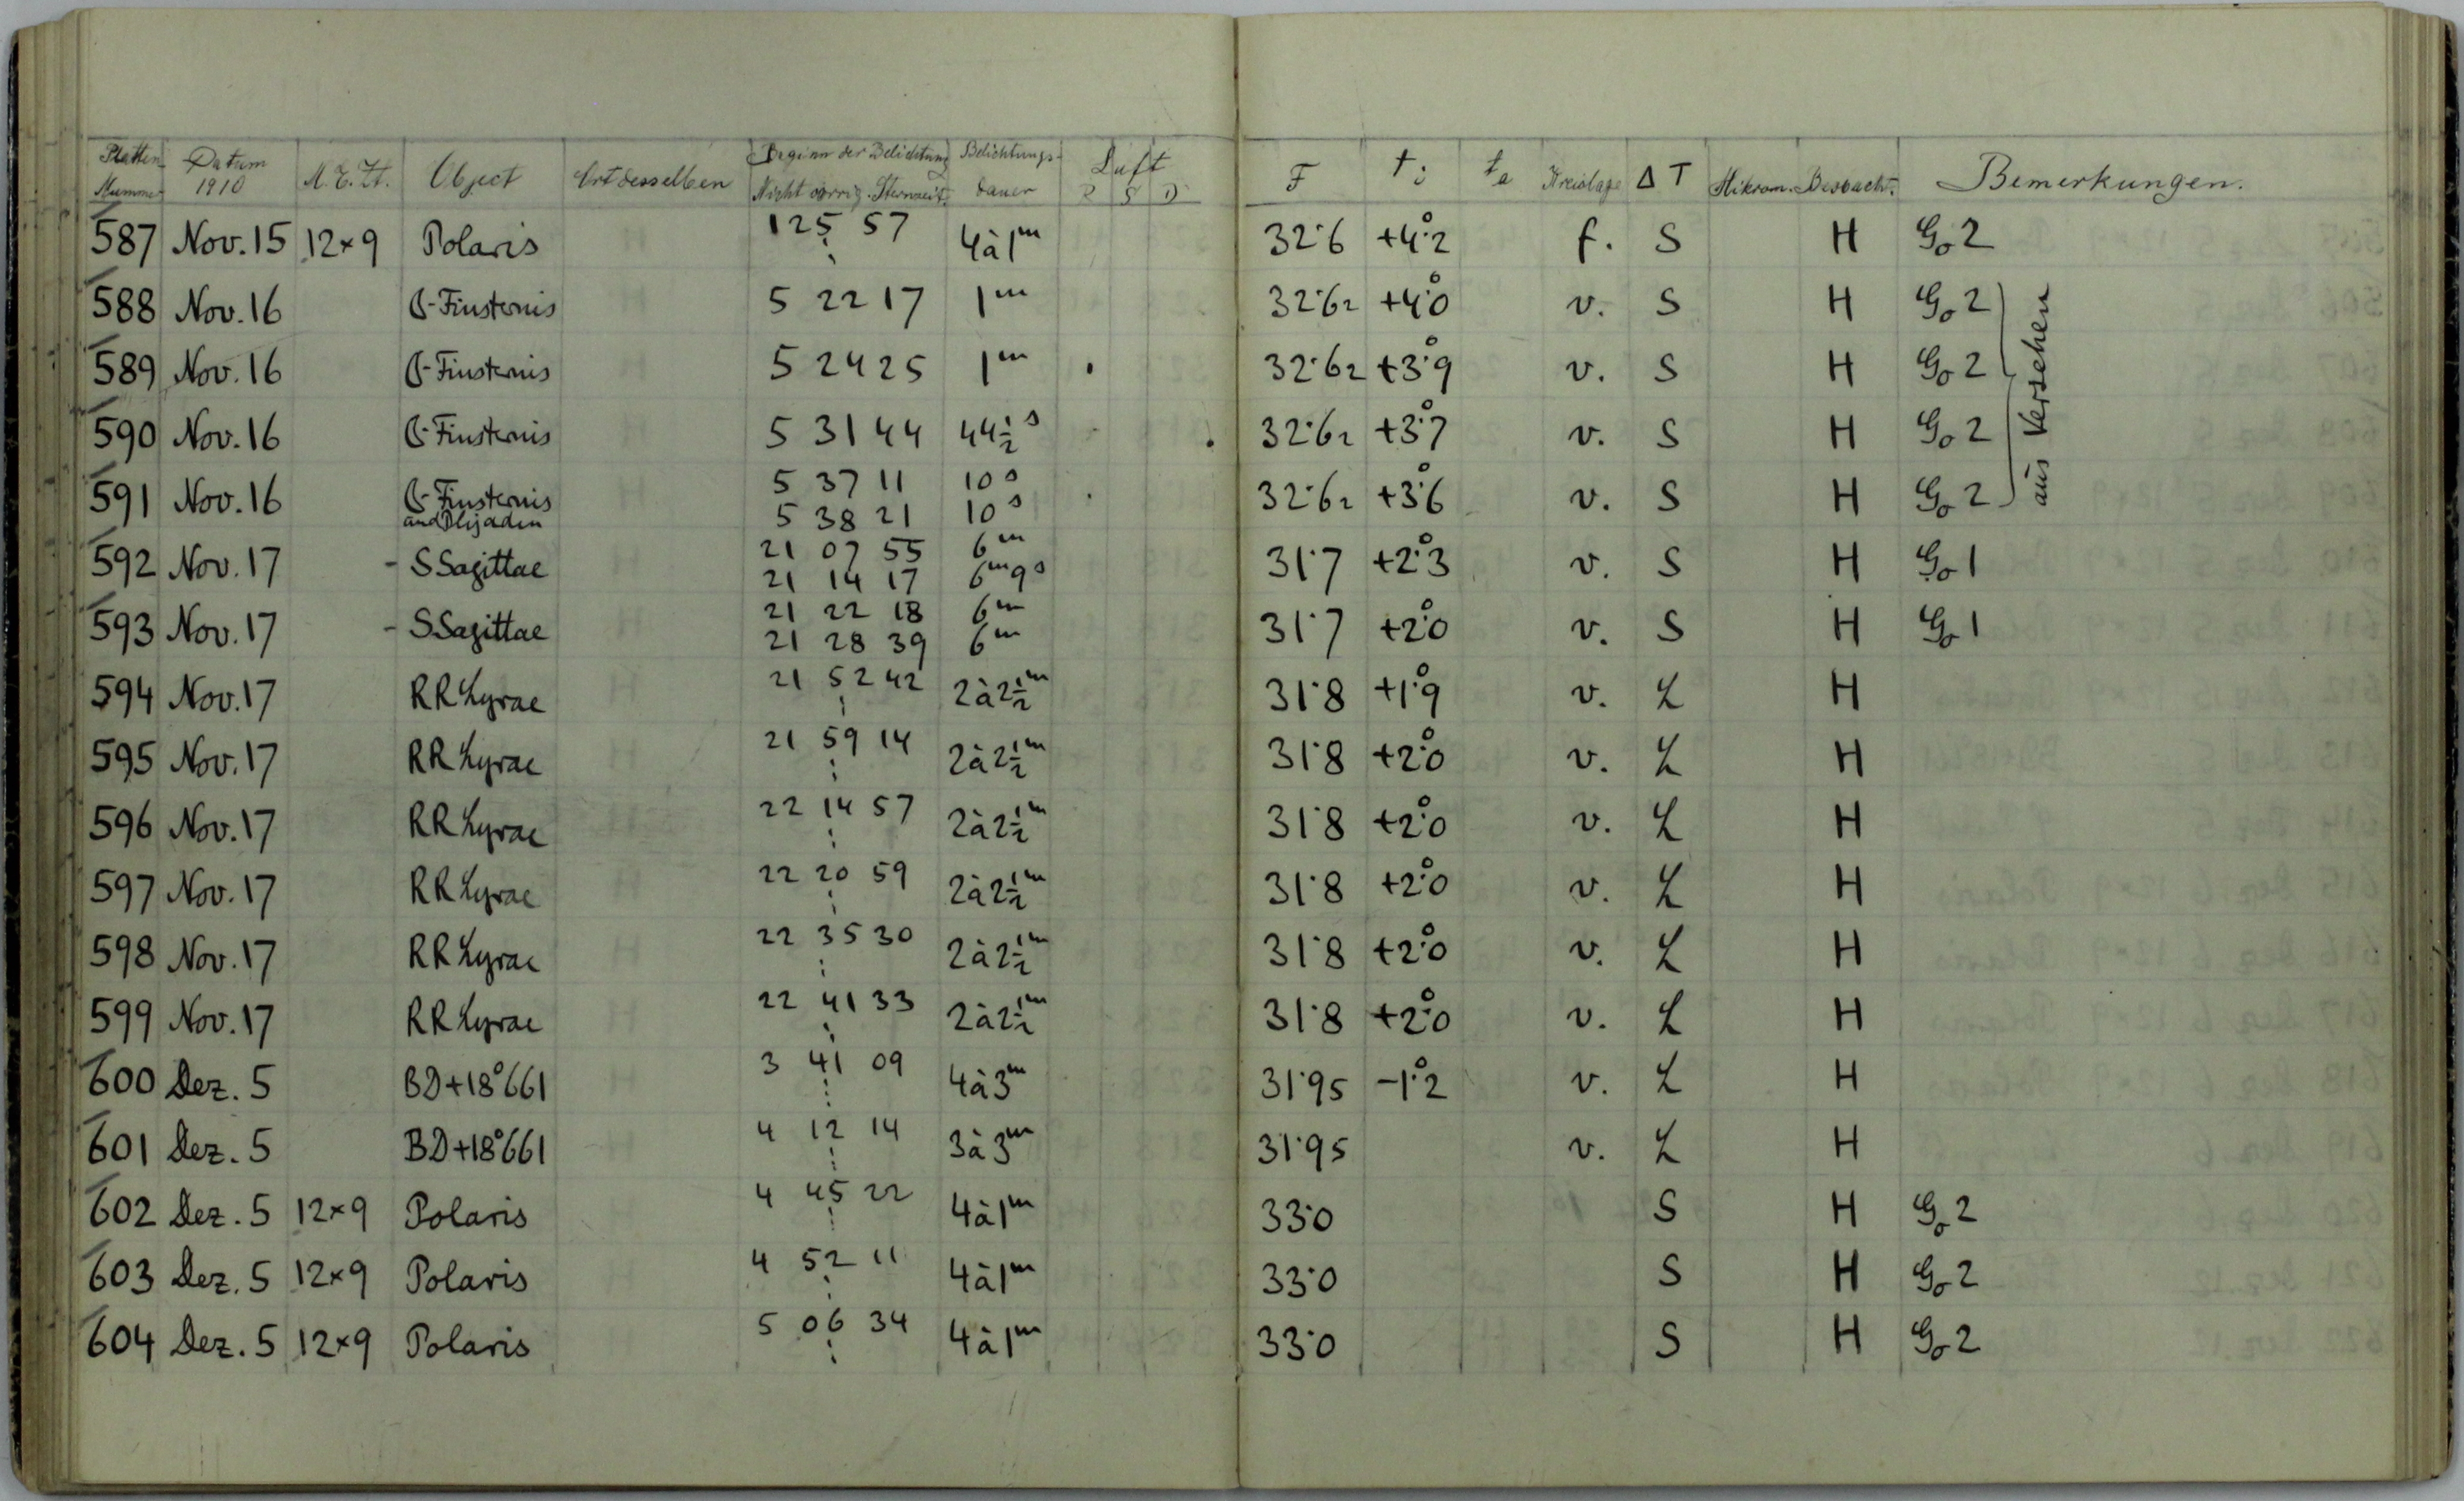 Platten- Nummer Datum 1910 M.E.Zt. Object Ort desselben Beginn der Belichtung Nicht corrig. Sternzeit. Belichtungs- dauer Luft R S D F ti ta Kreislage ΔT Mikrom. Beobacht. Bemerkungen.
587 Nov. 15 12×9 Polaris 1 25 57 4à1m 32.6 +4.°2 f. S H Go 2
588 Nov. 16 ☾-Finsternis 5 22 17 1m 32.62 +4.°0 v. S H Go 2
589 Nov. 16 ☾-Finsternis 5 24 25 1m 32.62 +3.°9 v. S H Go 2
590 Nov. 16 ☾-Finsternis 5 31 44 44½s 32.62 +3.°7 v. S H Go 2
aus Versehen
591 Nov. 16 ☾-Finsternis 5 37 11 10s 32.62 +3.°6 v. S H Go 2
and Plejaden 5 38 21 10s
592 Nov. 17 - S Sagittae 21 07 55 6m 31.7 +2.°3 v. S H Go 1
21 14 17 6m9s
593 Nov. 17 - S Sagittae 21 22 18 6m 31.7 +2.°0 v. S H Go 1
21 28 39 6m
594 Nov. 17 RR Lyrae 21 52 42 2à2½m 31.8 +1.°9 v. L H
595 Nov. 17 RR Lyrae 21 59 14 2à2½m 31.8 +2.°0 v. L H
596 Nov. 17 RR Lyrae 22 14 57 2à2½m 31.8 +2.°0 v. L H
597 Nov. 17 RR Lyrae 22 20 59 2à2½m 31.8 +2.°0 v. L H
598 Nov. 17 RR Lyrae 22 35 30 2à2½m 31.8 +2.°0 v. L H
599 Nov. 17 RR Lyrae 22 41 33 2à2½m 31.8 +2.°0 v. L H
600 Dez. 5 BD+18°661 3 41 09 4à3m 31.95 -1.°2 v. L H
601 Dez. 5 BD+18°661 4 12 14 3à3m 31.95 v. L H
602 Dez. 5 12×9 Polaris 4 45 22 4à1m 33.0 S H Go 2
603 Dez. 5 12×9 Polaris 4 52 11 4à1m 33.0 S H Go 2
604 Dez. 5 12×9 Polaris 5 06 34 4à1m 33.0 S H Go 2